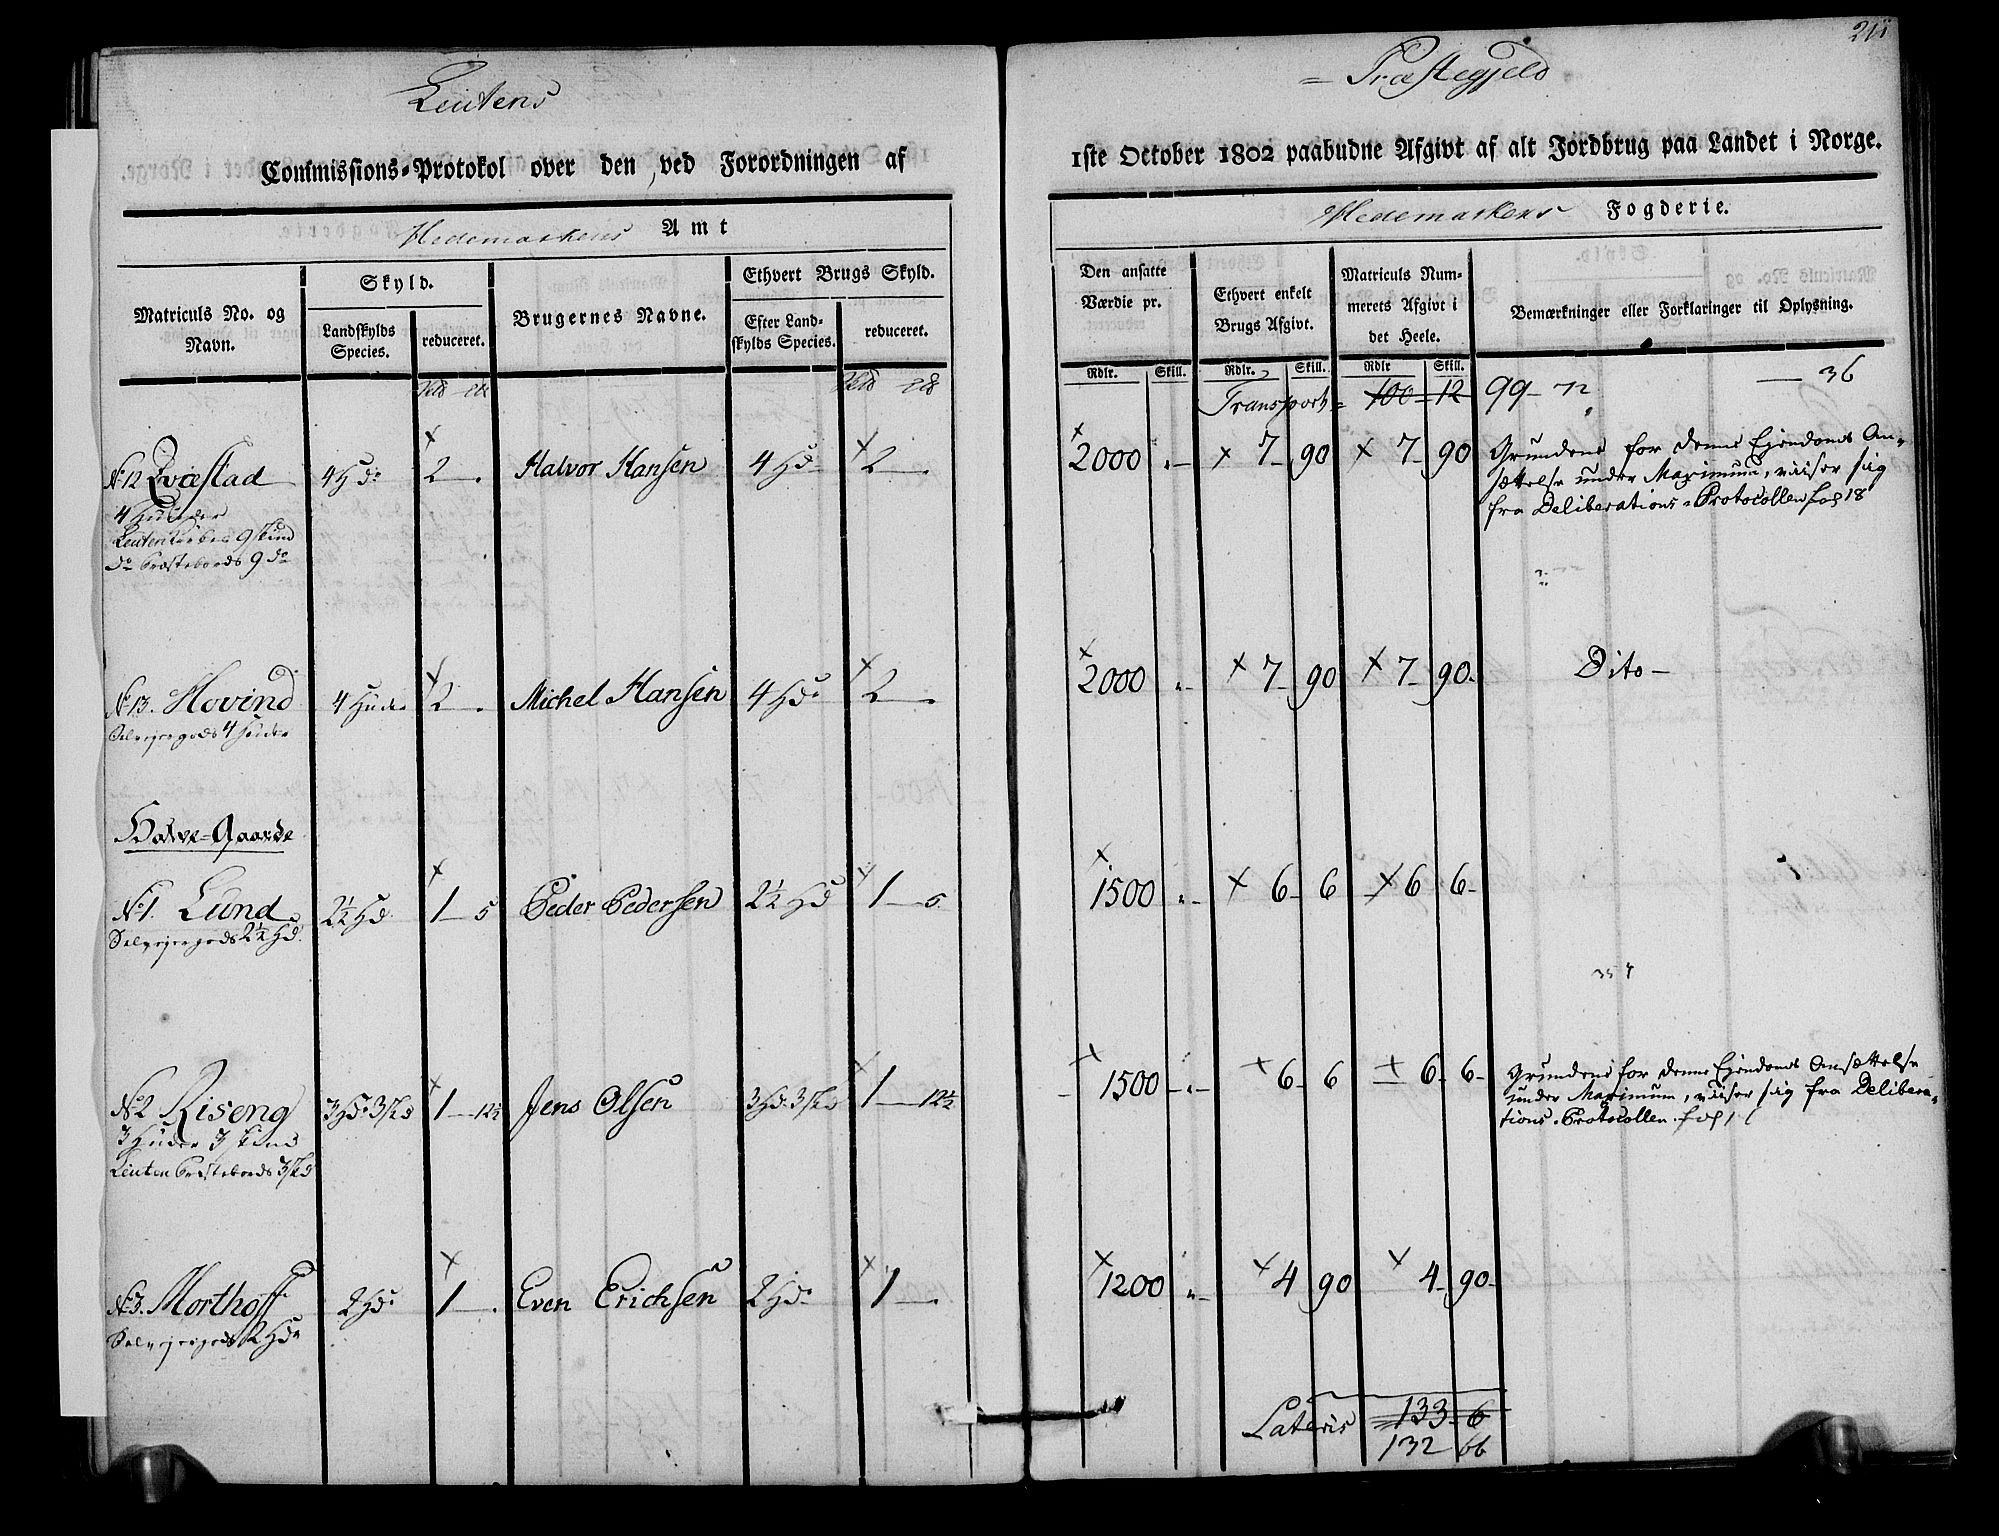 Leutens
Commissions-Protokol over den ved Forordningen af
Hedemarkens Amt
Matriculs No. og Navn.
Skyld.
Landskylds Species.
reduceret.
Brugernes Navne.
Ethvert Brugs Skyld.
Efter Landskylds Species.
reduceret.
No 12 Qvæstad 4 Hdr 2 — . Halvor Hansen 4 Hdr 2 — .
4 Huuder
9 Skind
do Præstebords 9 do
No 13. Hovind 4 Huder 2 — . Michel Hansen 4 Hdr 2 — .
Selvejergods 4 Huder
Halve-Gaarde
No 1. Lund 2½ Hd. 1 — 5 Peder Pedersen 2½ Hd 1 — 5.
Selvejergods 2½ Hd.
No 2 Riseng 3 Hdr 3 Skd 1 — 12½ Jens Olsen 3 Hd. 3 Skd 1 — 12½
3 Huder 3 Skind
Leuten Præstebords 3 Skd
No 3. Morthoff 2 Hdr 1 — . Even Erichsen 2 Hdr 1 — .
Selvejergods 2 Hdr
= Præstegjeld
1ste October 1802 paabudne Afgivt af alt Jordbrug paa Landet i Norge.
Hedemarkens Fogderie.
Den ansatte Værdie pr.
Ethvert enkelt Brugs Afgivt.
Matriculs Nummerets Afgivt i det Heele.
Bemærkninger eller Forklaringer til Oplysning.
Rdlr. Skill. Rdlr. Skill. Rdlr Skill.
Transport = 100 — 12 99 — 72 — 36
2000 „ — 7 — 90 7 — 90 Grundene for denne Ejendoms An-
sættelse under Maximum, viiser sig
fra Deliberations-Protocollen fol 18
2000 „ — 7 — 90 7 — 90 Dito —
1500 „ — 6 — 6 6 6 —
1500 — „ — 6 — 6 6 — 6 — Grundene for denne Ejendoms Ansættelse
under Maximum, viiser sig fra Delibera-
tions-Protocollen fol
1200 „ — 4 90 4 — 90 —
Lateris 133 — 6
132 66